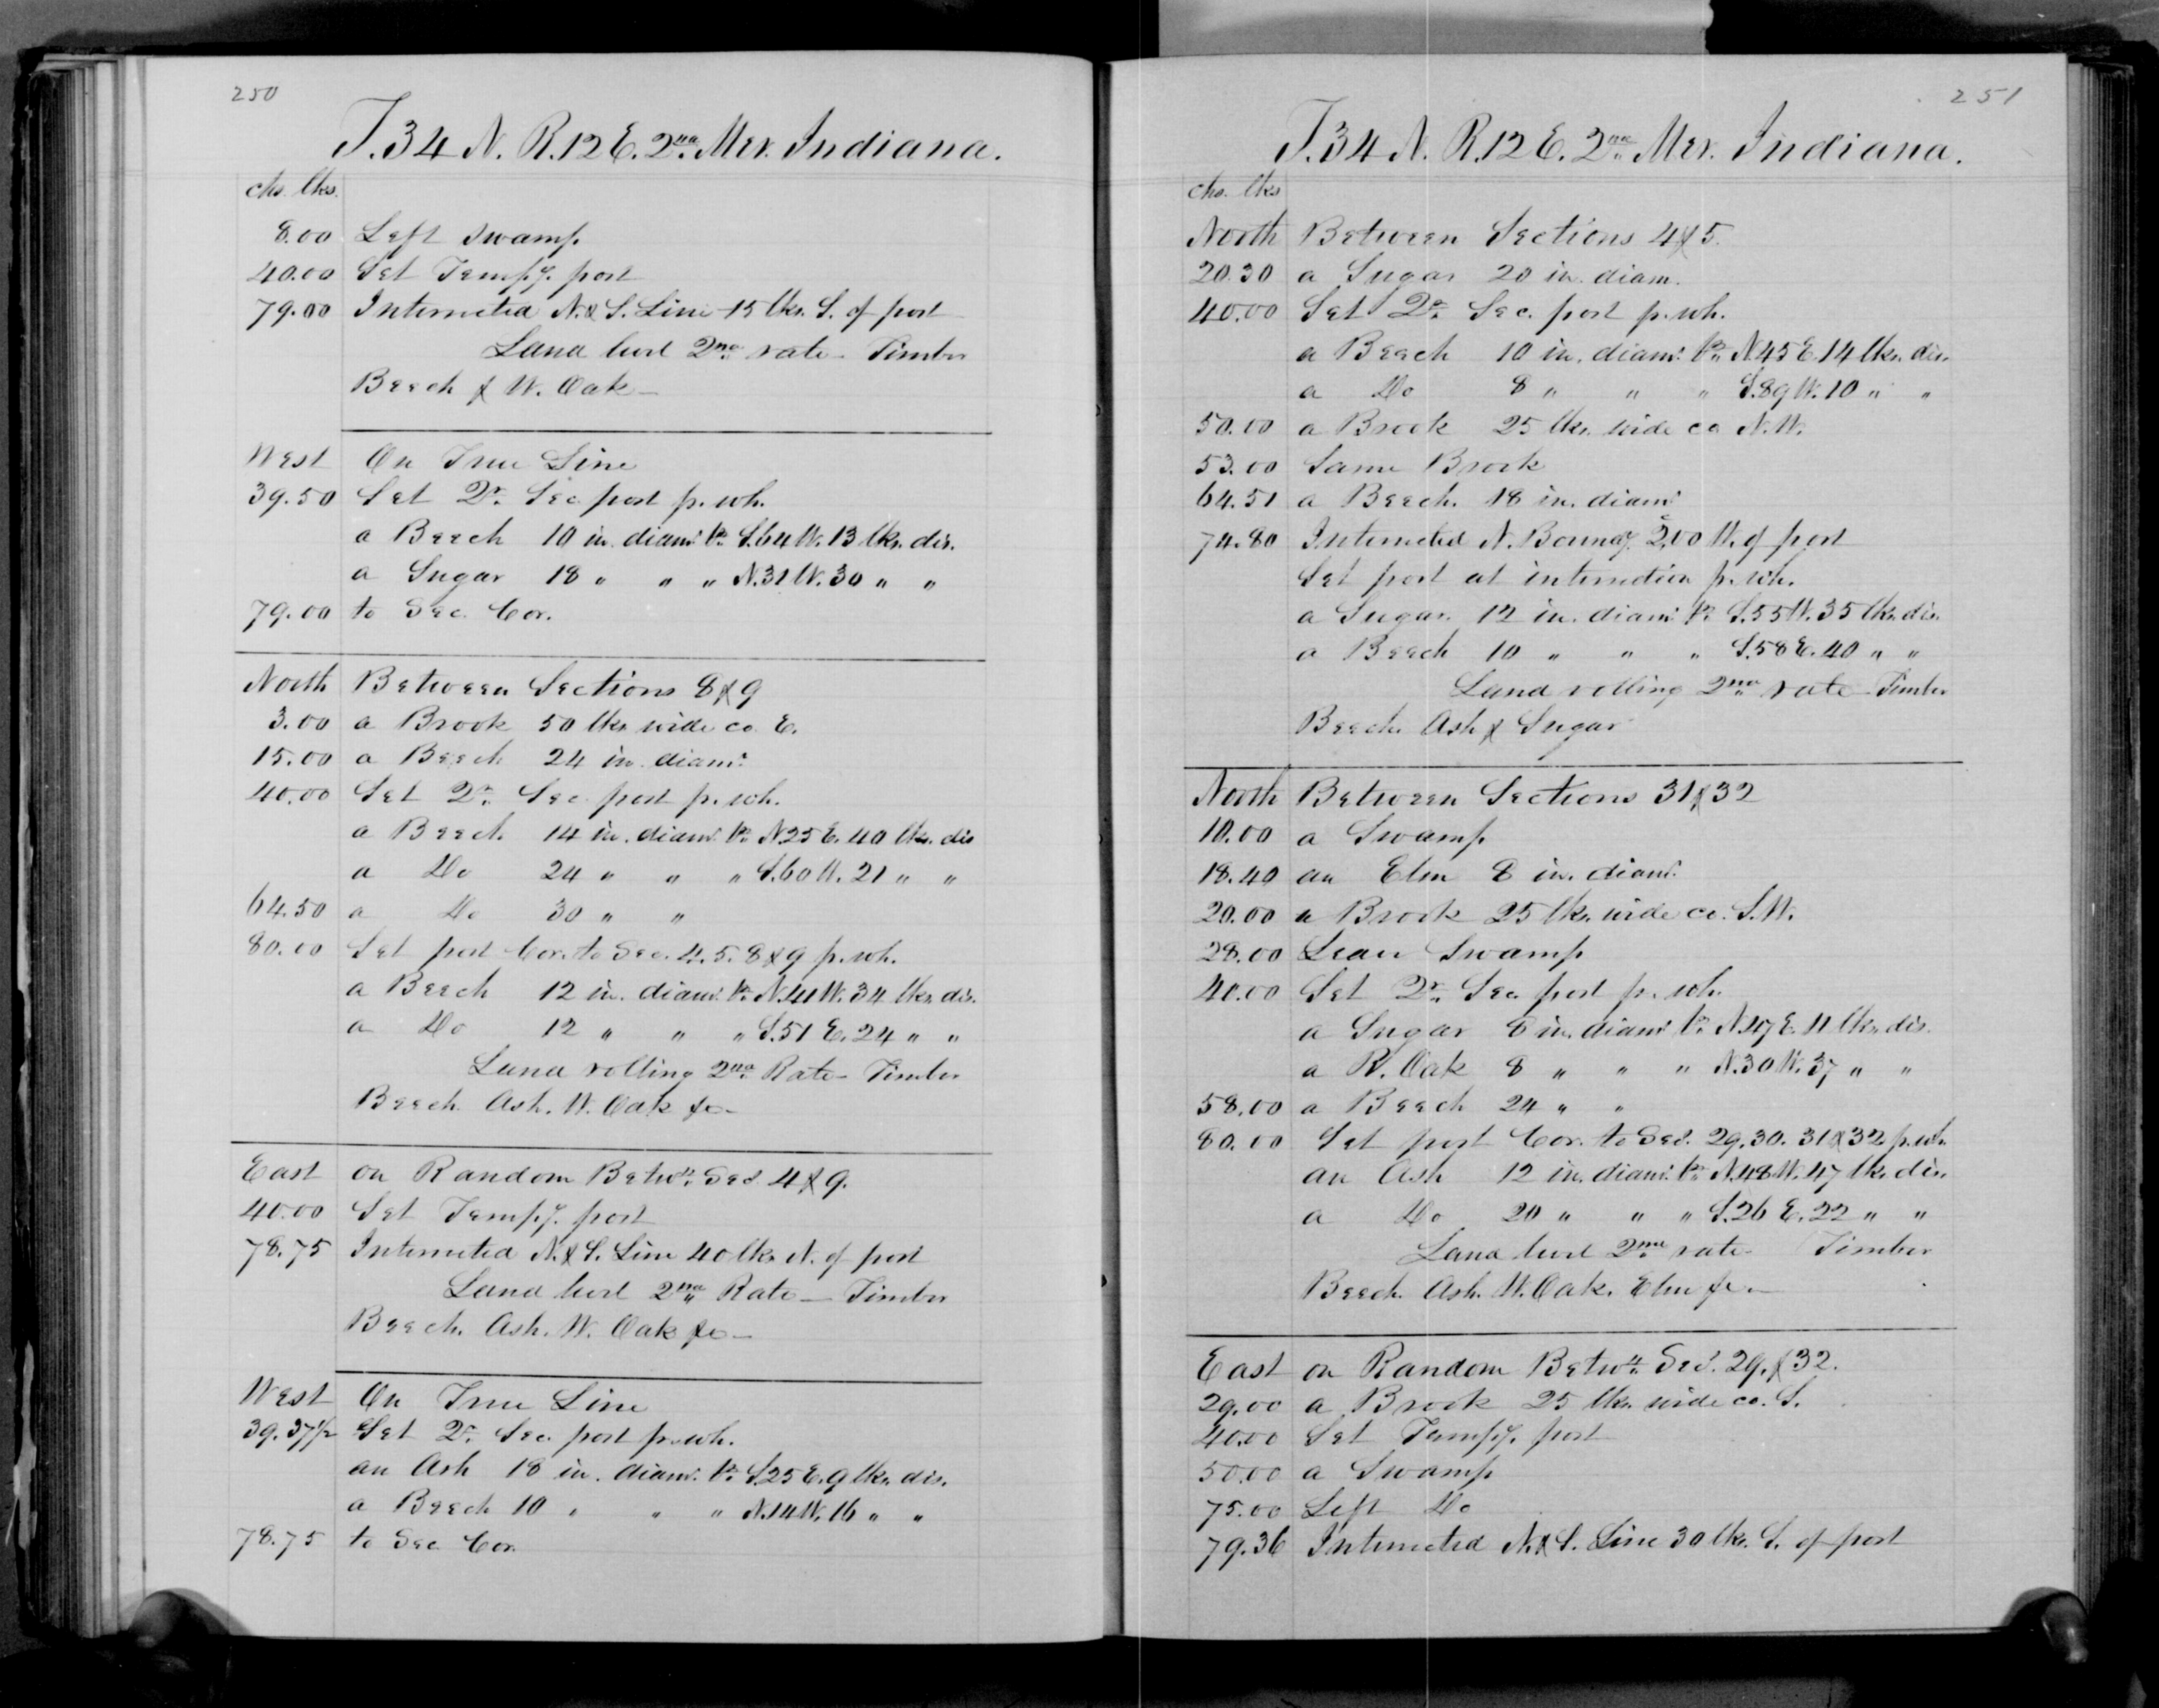 250
T.34 N. R.12 E. 2nd Mer. Indiana.
chs. lks.
8.00 Left swamp
40.00 Set Tempy. post
79.00 Intersected N.& S. Line 15 lks. S. of post
Land level 2nd rate – Timber
Beech & W. Oak –
West On True Line
39.50 Set Qr. Sec. post p. wh.
a Beech 10 in. diamr. br. S.64 W. 13 lks. dis.
a Sugar 18 " " " N.31 W. 30 " "
79.00 to Sec. Cor.
North Between Sections 8 & 9
3.00 a Brook 50 lks wide co. E.
15.00 a Beech 24 in. diamr.
40.00 Set Qr. Sec. post p. wh.
a Beech 14 in. diamr. br. N.25 E. 40 lks. dis
a Do 24 " " " S.60 W. 21 " "
64.50 a Do 30 " "
80.00 Set post Cor. to Sec. 4. 5. 8 & 9 p. wh.
a Beech 12 in. diamr. br. N.41 W. 34 lks. dis.
a Do 12 " " " S.51 E. 24 " "
Land rolling 2nd Rate – Timber
Beech. Ash. W. Oak &c –
East on Random Betwn. Secs. 4 & 9.
40.00 Set Tempy. post
78.75 Intersected N.& S. Line 40 lks N. of post
Land level 2nd Rate – Timber
Beech. Ash. W. Oak &c –
West On True Line
39.37½ Set Qr. Sec. post p. wh.
an Ash 18 in. diamr. br. S.25 E. 9 lks. dis.
a Beech 10 " " " N.14 W. 16 " "
78.75 to Sec Cor.
251
T.34 N. R.12 E. 2nd Mer. Indiana.
chs. lks
North Between Sections 4 & 5.
20.30 a Sugar 20 in. diam.
40.00 Set Qr. Sec. post p. wh.
a Beech 10 in. diamr. br. N.45 E. 14 lks. dis.
a Do 8 " " " S.89 W. 10 " "
50.00 a Brook 25 lks. wide co N.W.
53.00 Same Brook
64.51 a Beech. 18 in. diamr
74.80 Intersected N. Boundy. 2.00 W. of post
Set post at intersection p. wh.
a Sugar. 12 in. diamr. br. S.55 W. 35 lks. dis.
a Beech 10 " " " S.58 E. 40 " "
Land rolling 2nd rate – Timber
Beech. Ash & Sugar
North Between Sections 31 & 32
10.00 a Swamp
18.40 an Elm 8 in. diamr.
20.00 a Brook 25 lks. wide co. S.W.
28.00 Leave Swamp
40.00 Set Qr. Sec. post p. wh.
a Sugar 8 in. diamr. br. N.47 E. 11 lks. dis.
a R. Oak 8 " " " N.30 W. 37 " "
58.00 a Beech 24 " "
80.00 Set post Cor. to Secs. 29. 30. 31 & 32 p. wh.
an Ash 12 in. diamr. br. N.48 W. 47 lks. dis.
a Do 20 " " " S.26 E. 22 " "
Land level 2nd rate – Timber
Beech. Ash. W. Oak. Elm &c –
East on Random Betwn. Secs. 29. & 32.
29.00 a Brook 25 lks. wide co. S.
40.00 Set Tempy. post
50.00 a Swamp
75.00 Left Do
79.36 Intersected N.& S. Line 30 lks. S. of post